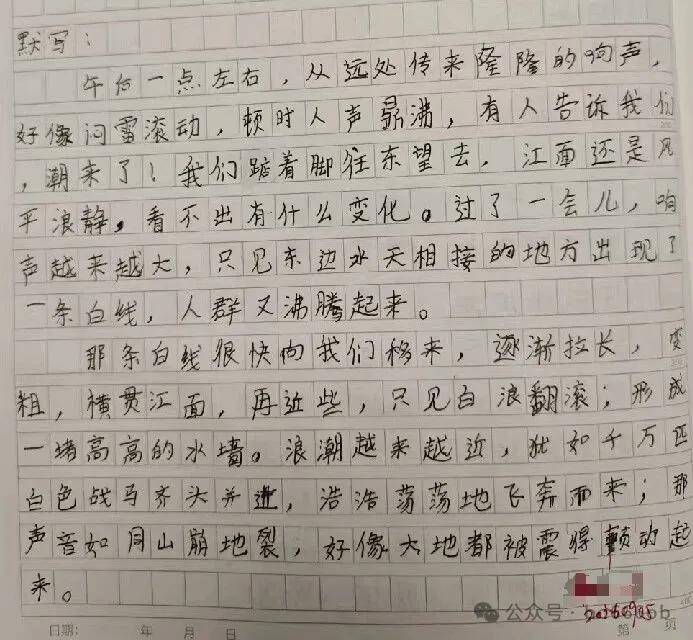 默写：
午后一点左右，从远处传来隆隆的响声，
好像闷雷滚动，顿时人声鼎沸，有人告诉我们
，潮来了！我们踮着脚往东望去，江面还是风
平浪静，看不出有什么变化。过了一会儿，响
声越来越大，只见东边水天相接的地方出现了
一条白线，人群又沸腾起来。
那条白线很快向我们移来，逐渐拉长，变
粗，横贯江面，再近些，只见白浪翻滚；形成
一堵高高的水墙。浪潮越来越近，犹如千万匹
白色战马齐头并进，浩浩荡荡地飞奔而来；那
声音如同山崩地裂，好像大地都被震得颤动起
来。
公众号·
日期： 年 月 日 第 页